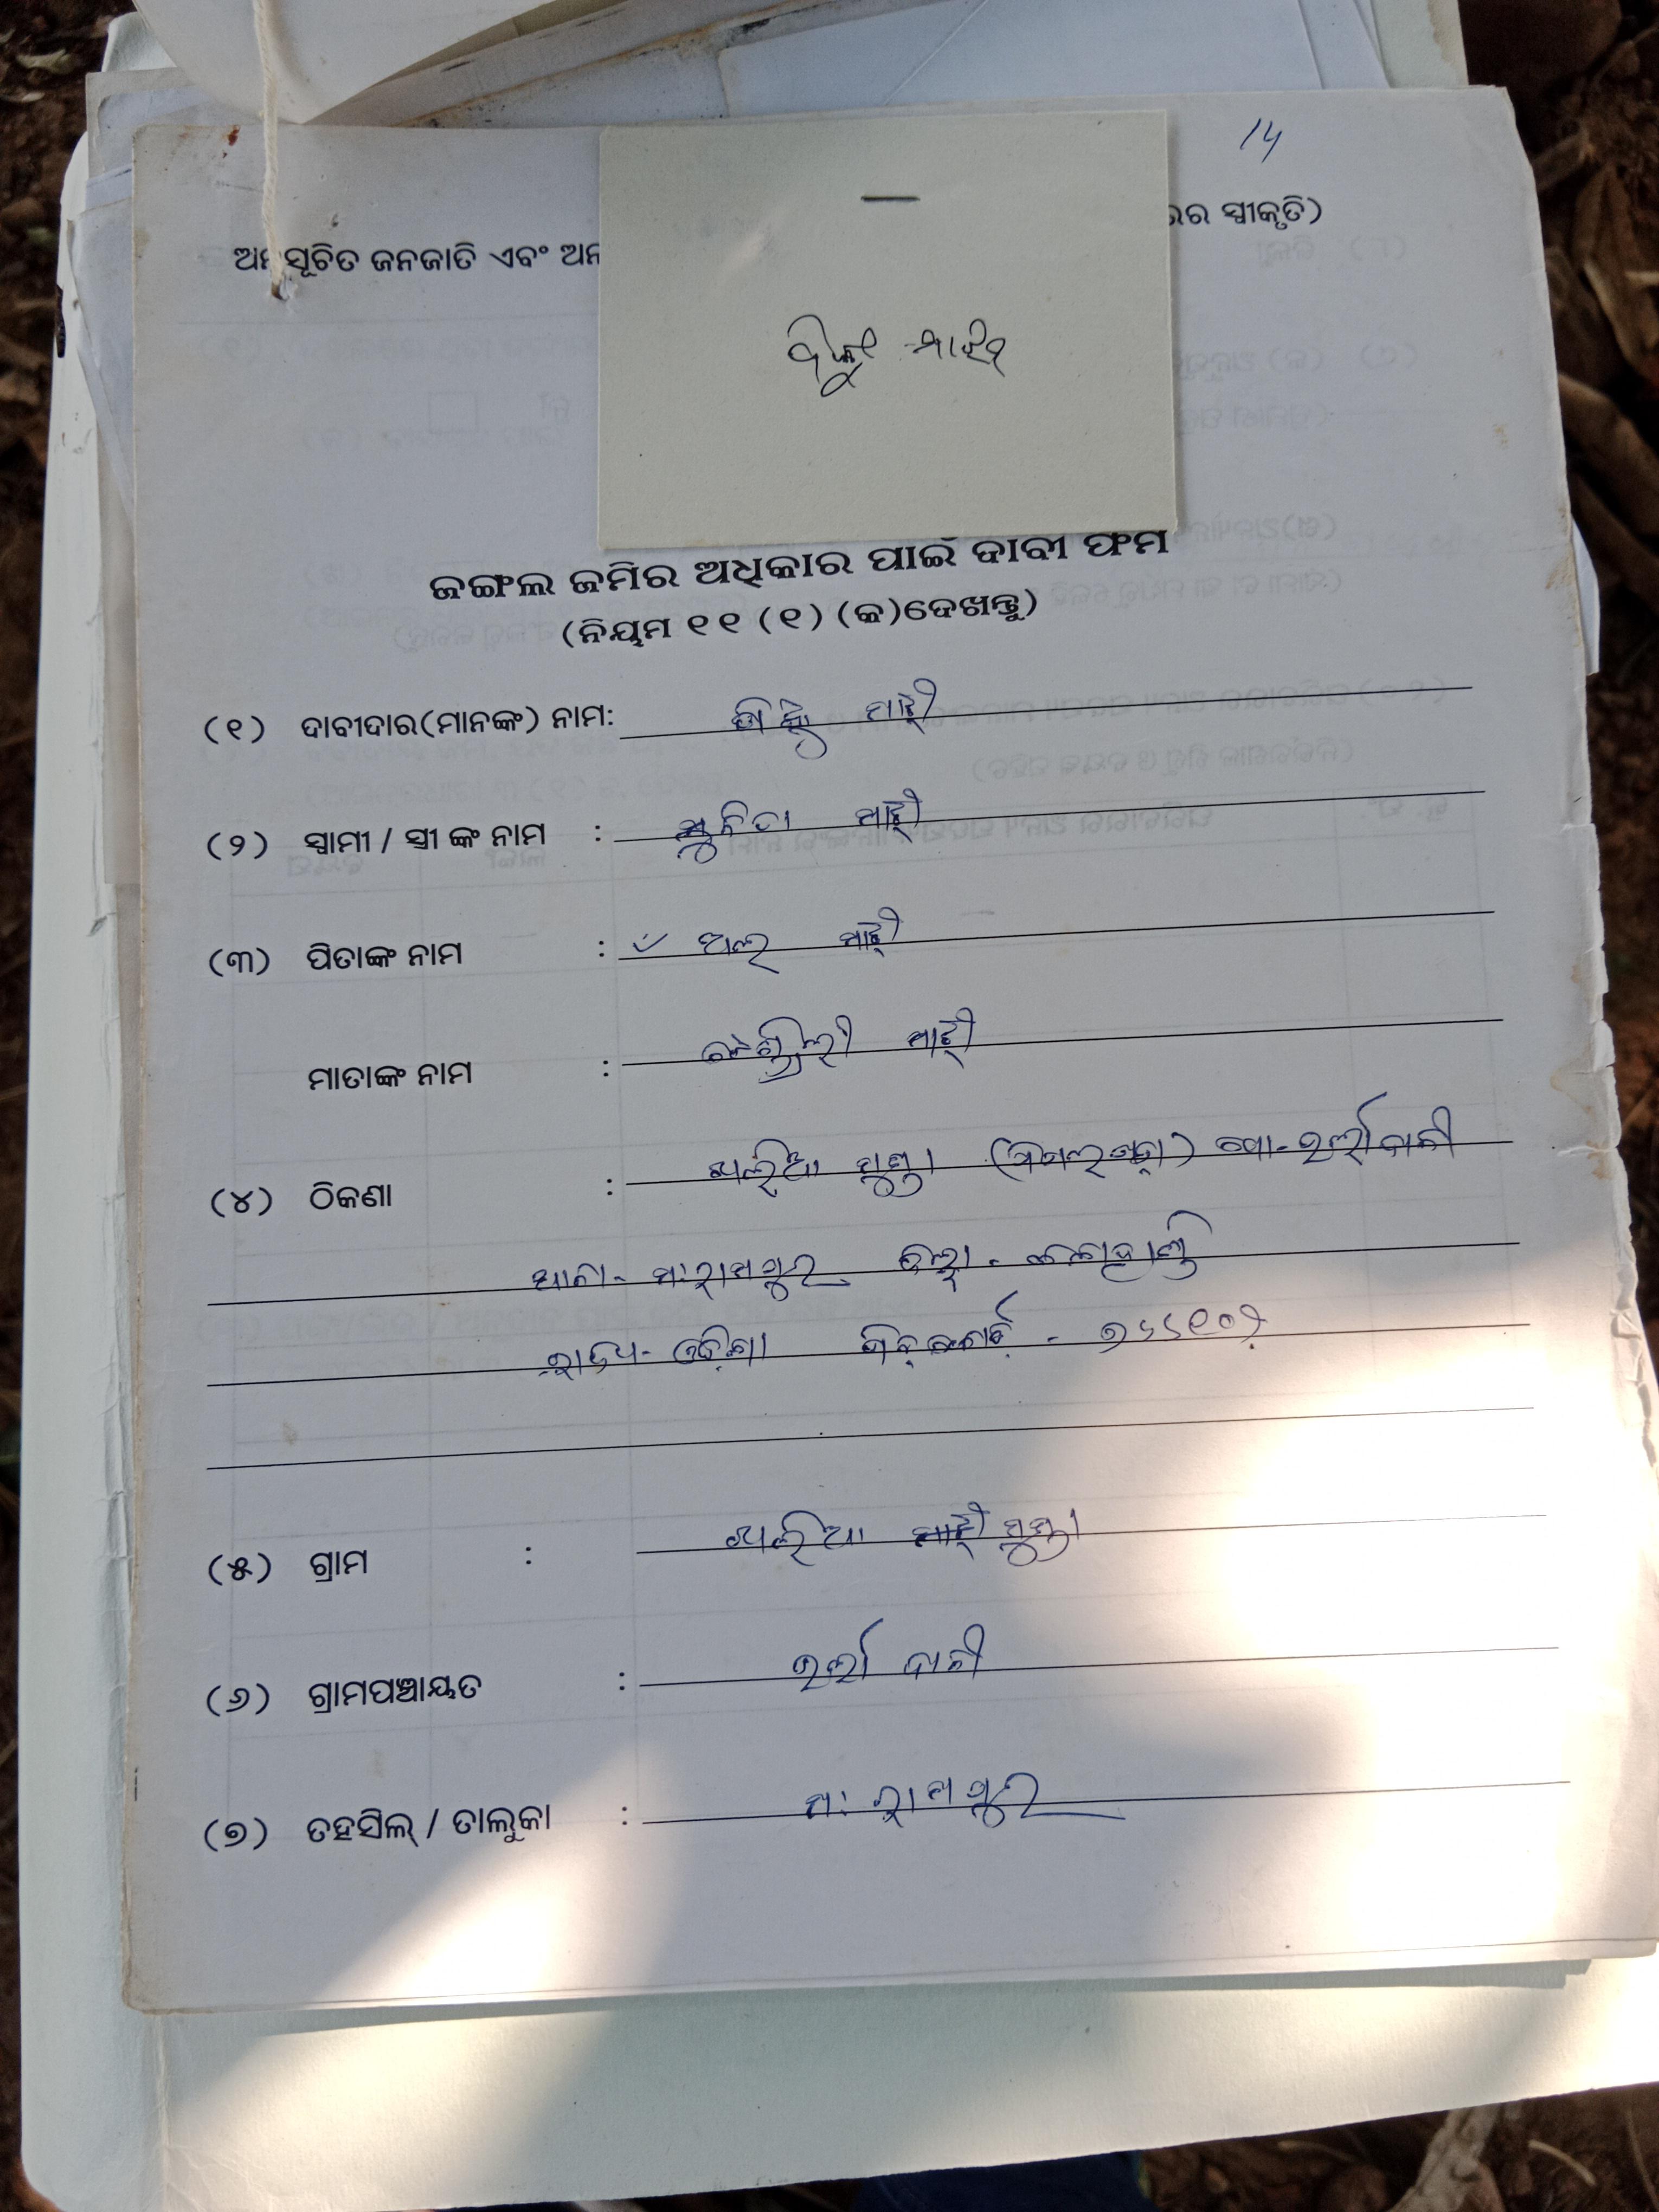 14
ଅନୁସୂଚିତ ଜନଜାତି ଏବଂ ଅନ ର ସ୍ଵୀକୃତି)
ମାଝି
ଜଙ୍ଗଲ ଜମିର ଅଧିକାର ପାଇଁ ଦାବୀ ଫର୍ମ
(ନିୟମ ୧୧ (୧) (କ)ଦେଖନ୍ତୁ)
(୧) ଦାବୀଦାର(ମାନଙ୍କ) ନାମ: ମାଝି
(୨) ସ୍ଵାମୀ / ସ୍ତ୍ରୀ ଙ୍କ ନାମ : ସୁନିତା ମାଝି
(୩) ପିତାଙ୍କ ନାମ : ମାଝି
ମାତାଙ୍କ ନାମ : ମାଝି
(୪) ଠିକଣା : ଖଲିଆ ପୋ-ଉର୍ଲାଦାନୀ
ଥାନା- ମ:ରାମପୁର ଜିଲ୍ଲା- କଳାହାଣ୍ଡି
ରାଜ୍ୟ- ଓଡ଼ିଶା ପିନ୍‌କୋର୍ଡ଼ - ୭୬୬୧୦୨
(୫) ଗ୍ରାମ : ଖଲିଆ
(୬) ଗ୍ରାମପଞ୍ଚାୟତ : ଉର୍ଲାଦାନୀ
(୭) ତହସିଲ୍ / ତାଲୁକା : ମ: ରାମପୁର